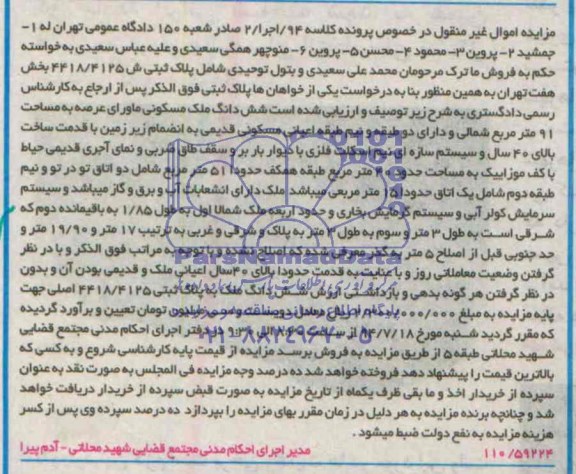 مزایده اموال غیر منقول در خصوص پرونده کلاسه ۹۴/اجرا/۲ صادر شعبه ۱۵۰ دادگاه عمومی تهران له ۱-
جمشید ۲- پروین ۳- محمود ۴- محسن ۵- پروین ۶- منوچهر همگی سعیدی و علیه عباس سعیدی به خواسته
حکم به فروش ما ترک مرحومان محمد علی سعیدی و بتول توحیدی شامل پلاک ثبتی ش ۴۴۱۸/۴۱۲۵ بخش
هفت تهران به همین منظور بنا به درخواست یکی از خواهان ها پلاک ثبتی فوق الذکر پس از ارجاع به کارشناس
رسمی دادگستری به شرح زیر توصیف و ارزیابی شده است شش دانگ ملک مسکونی ماورای عرصه به مساحت
۹۱ متر مربع شمالی و دارای دو طبقه و نیم طبقه اعیانی مسکونی قدیمی به انضمام زیر زمین با قدمت ساخت
بالای ۴۰ سال و سیستم سازه ای نیم اسکلت فلزی با دیوار بار بر و سقف طاق ضربی و نمای آجری قدیمی حیاط
با کف موزاییک به مساحت حدود ۴۰ متر مربع طبقه همکف حدودا ۵۱ متر مربع شامل دو اتاق تو در تو و نیم
طبقه دوم شامل یک اتاق حدودا ۱۵ متر مربعی میباشد ملک دارای انشعابات آب و برق و گاز میباشد و سیستم
سرمایش کولر آبی و سیستم گرمایش بخاری و حدود اربعه ملک شمالا اول به طول ۱/۸۵ به باقیمانده دوم که
شرقی است به طول ۳ متر و سوم به طول ۴ متر به پلاک و شرقی و غربی به ترتیب ۱۷ متر و ۱۹/۹۰ متر و
حد جنوبی قبل از اصلاح ۵ متر به گذر معرفی شد که اصلاح نشده و با توجه به مراتب فوق الذکر و با در نظر
گرفتن وضعیت معاملاتی روز و با عنایت به قدمت حدودا بالای ۴۰ سال اعیانی ملک و قدیمی بودن آن و بدون
در نظر گرفتن هر گونه بدهی و بازداشتی ارزش شش دانگ ملک به پلاک ثبتی ۴۴۱۸/۴۱۲۵ اصلی جهت
پایه مزایده به مبلغ میلیون تومان تعیین و برآورد گردیده
که مقرر گردید شنبه مورخ ۹۴/۷/۱۸ از ساعت در دفتر اجرای احکام مدنی مجتمع قضایی
شهید محلاتی طبقه ۵ از طریق مزایده به فروش برسد مزایده از قیمت پایه کارشناسی شروع و به کسی که
بالاترین قیمت را پیشنهاد دهد فروخته خواهد شد ده درصد وجه مزایده فی المجلس به صورت نقد به عنوان
سپرده از خریدار اخذ و ما بقی ظرف یکماه از تاریخ مزایده به صورت قبض سپرده از خریدار دریافت خواهد
شد و چنانچه برنده مزایده به هر دلیل در زمان مقرر بهای مزایده را بپردازد ده درصد سپرده وی پس از کسر
هزینه مزایده به نفع دولت ضبط میشود .
۱۱۰/۵۹۲۲۴ مدیر اجرای احکام مدنی مجتمع قضایی شهید محلاتی - آدم پیرا
ParsNamadData
۰۲۱-۸۸۳۴۹۶۷۰-۵